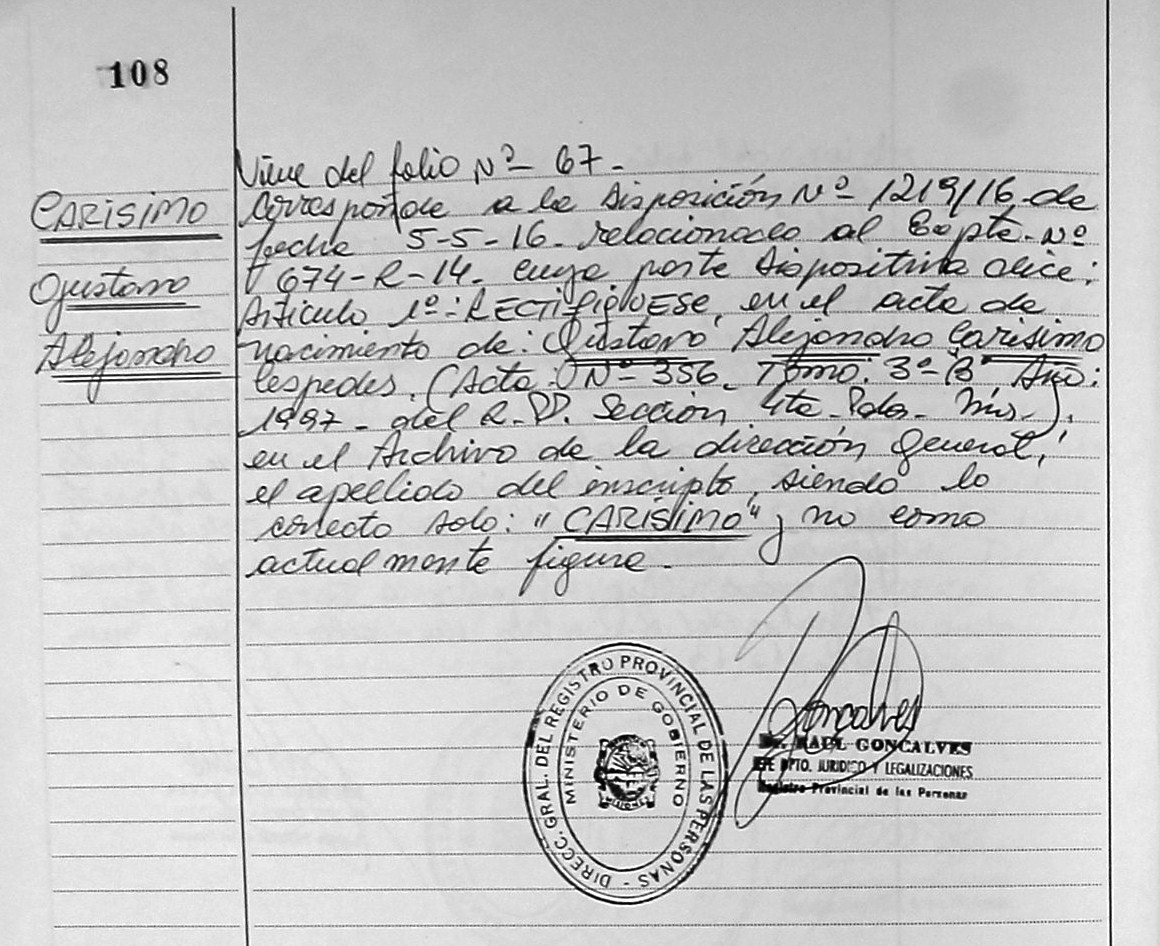 108
CARISIMO
Gustavo
Alejandro
Viene del folio Nº 67.-
Corresponde a la Disposición Nº 1219/16 de
fecha 5-5-16. relacionado al Expte. Nº
674-R-14. cuya parte dispositiva dice:
Artículo 1º: RECTIFIQUESE, en el acta de
nacimiento de: Gustavo Alejandro Carisimo
Cespedes, (Acta: Nº 356. Tomo: 3º B. Año:
1997. del R.P.P. Sección 4ta. Pdas. Mns.),
en el Archivo de la dirección General,
el apellido del inscripto, siendo lo
correcto solo: "CARISIMO" y no como
actualmente figura.-
DIRECC. GRAL. DEL REGISTRO PROVINCIAL DE LAS PERSONAS -
MINISTERIO DE GOBIERNO
MISIONES
Goncalves
Dr. RAUL GONCALVES
JEFE DPTO. JURIDICO Y LEGALIZACIONES
Registro Provincial de las Personas